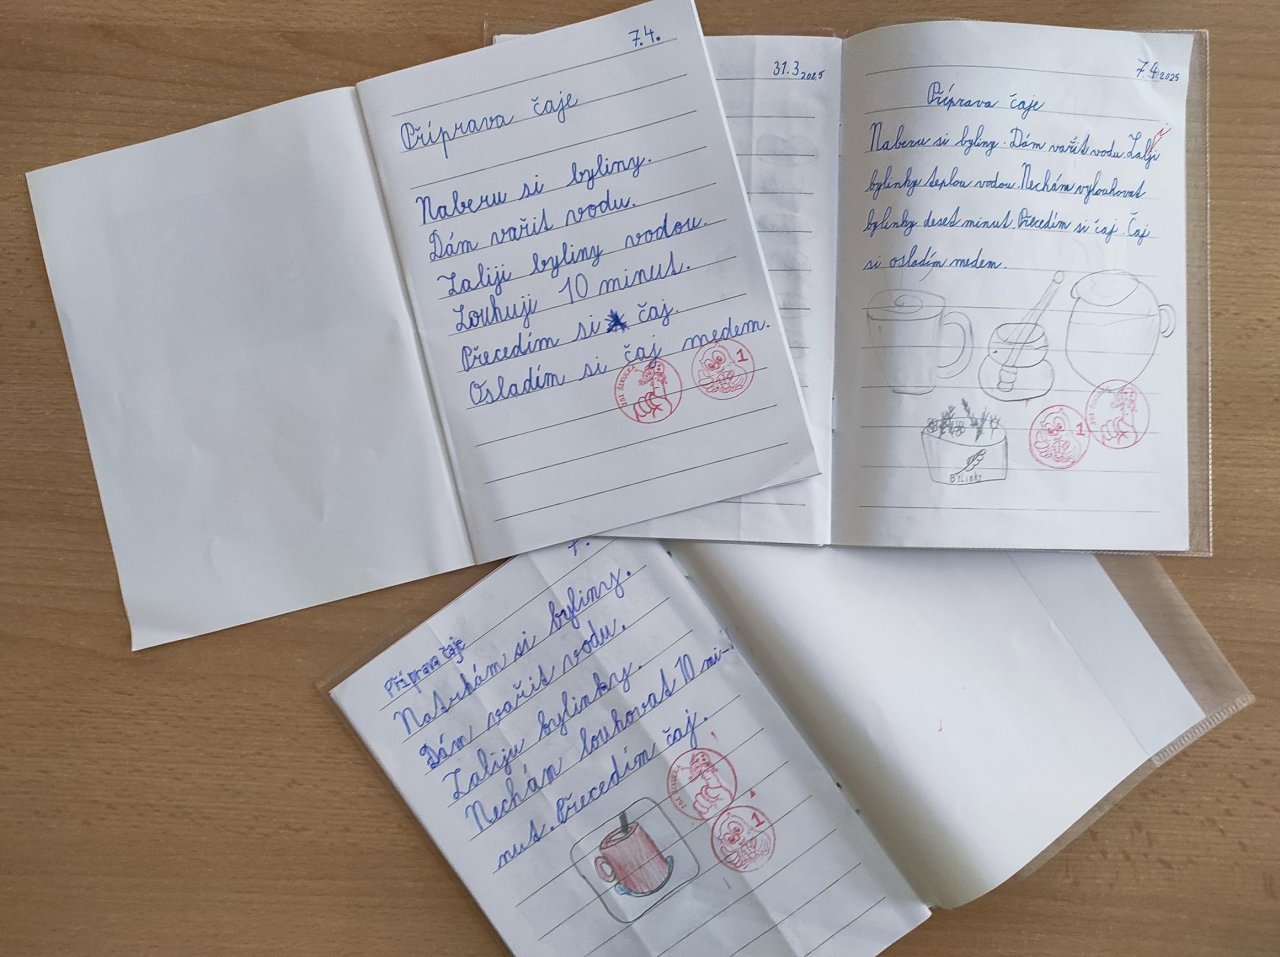 7.4.
Příprava čaje
Naberu si byliny.
Dám vařit vodu.
Zaliji byliny vodou.
Louhuji 10 minut.
Přecedím si čaj.
Osladím si čaj medem.
1
31.3.2025
7.4.2025
Příprava čaje
Naberu si byliny. Dám vařit vodu. Zalji
bylinky teplou vodou. Nechám vylouhovat
bylinky deset minut. Přecedím si čaj. Čaj
si osladím medem.
Bylinky
1
7.
Příprava čaje
Natrhám si byliny.
Dám vařit vodu.
Zaliju bylinky.
Nechám louhovat 10 mi-
nut. Přecedím čaj.
1